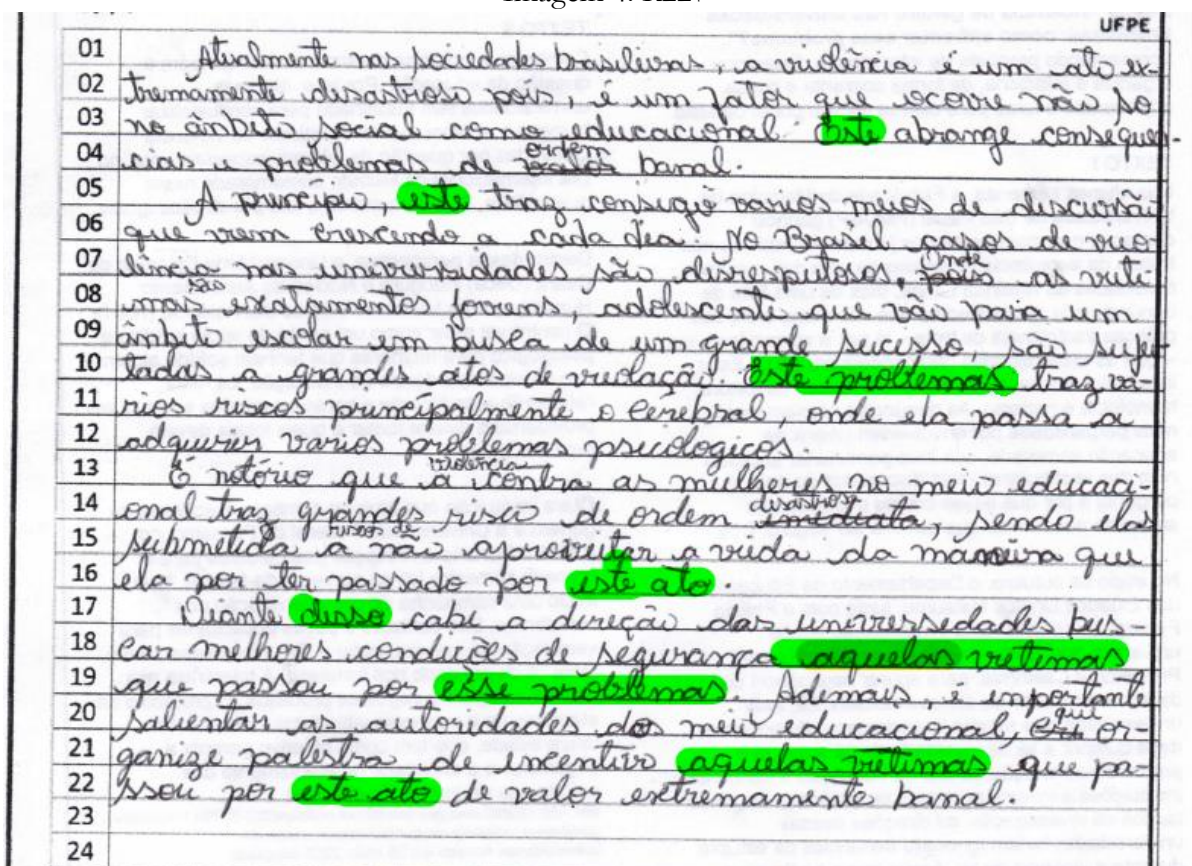 UFPE
01 Atualmente nas sociedades brasileiras, a violência é um ato ex-
02 tremamente desastroso pois, é um fator que ocorre não so
03 no âmbito social como educacional. Este abrange consequen-
04 cias e problemas de ordem banal.
05 A principio, este traz consigo varios meios de discursão
06 que vem crescendo a cada dia. No Brasil casos de vio-
07 lência nas universidades são disrespeitosos, onde as viti-
08 mas são exatamentos jovens, adolescente que vão para um
09 âmbito escolar em busca de um grande sucesso, são sujei
10 tadas a grandes atos de violação. Este problemas traz va-
11 rios riscos principalmente o cerebral, onde ela passa a
12 adquirir varios problemas psicologicos.
13 É notório que a violência contra as mulheres no meio educaci-
14 onal traz grandes risco de ordem desastrosa, sendo elas
15 submetida a riscos de não aproveitar a vida da maneira que
16 ela por ter passado por este ato.
17 Diante disso cabe a direção das universsidades bus-
18 car melhores condições de segurança aquelas vitimas
19 que passou por esse problemas. Ademais, é importante
20 salientar as autoridades dos meio educacional, que or-
21 ganize palestra de incentivo aquelas vitimas que pa-
22 ssou por este ato de valor extremamente banal.
23
24